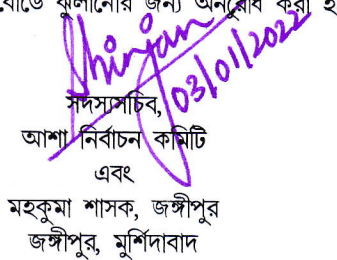 বোর্ডে ঝুলানোর জন্য অনুরোধ করা হ
Shinjan
03/01/2022
সদস্যসচিব,
আশা নির্বাচন কমিটি
এবং
মহকুমা শাসক, জঙ্গীপুর
জঙ্গীপুর, মুর্শিদাবাদ